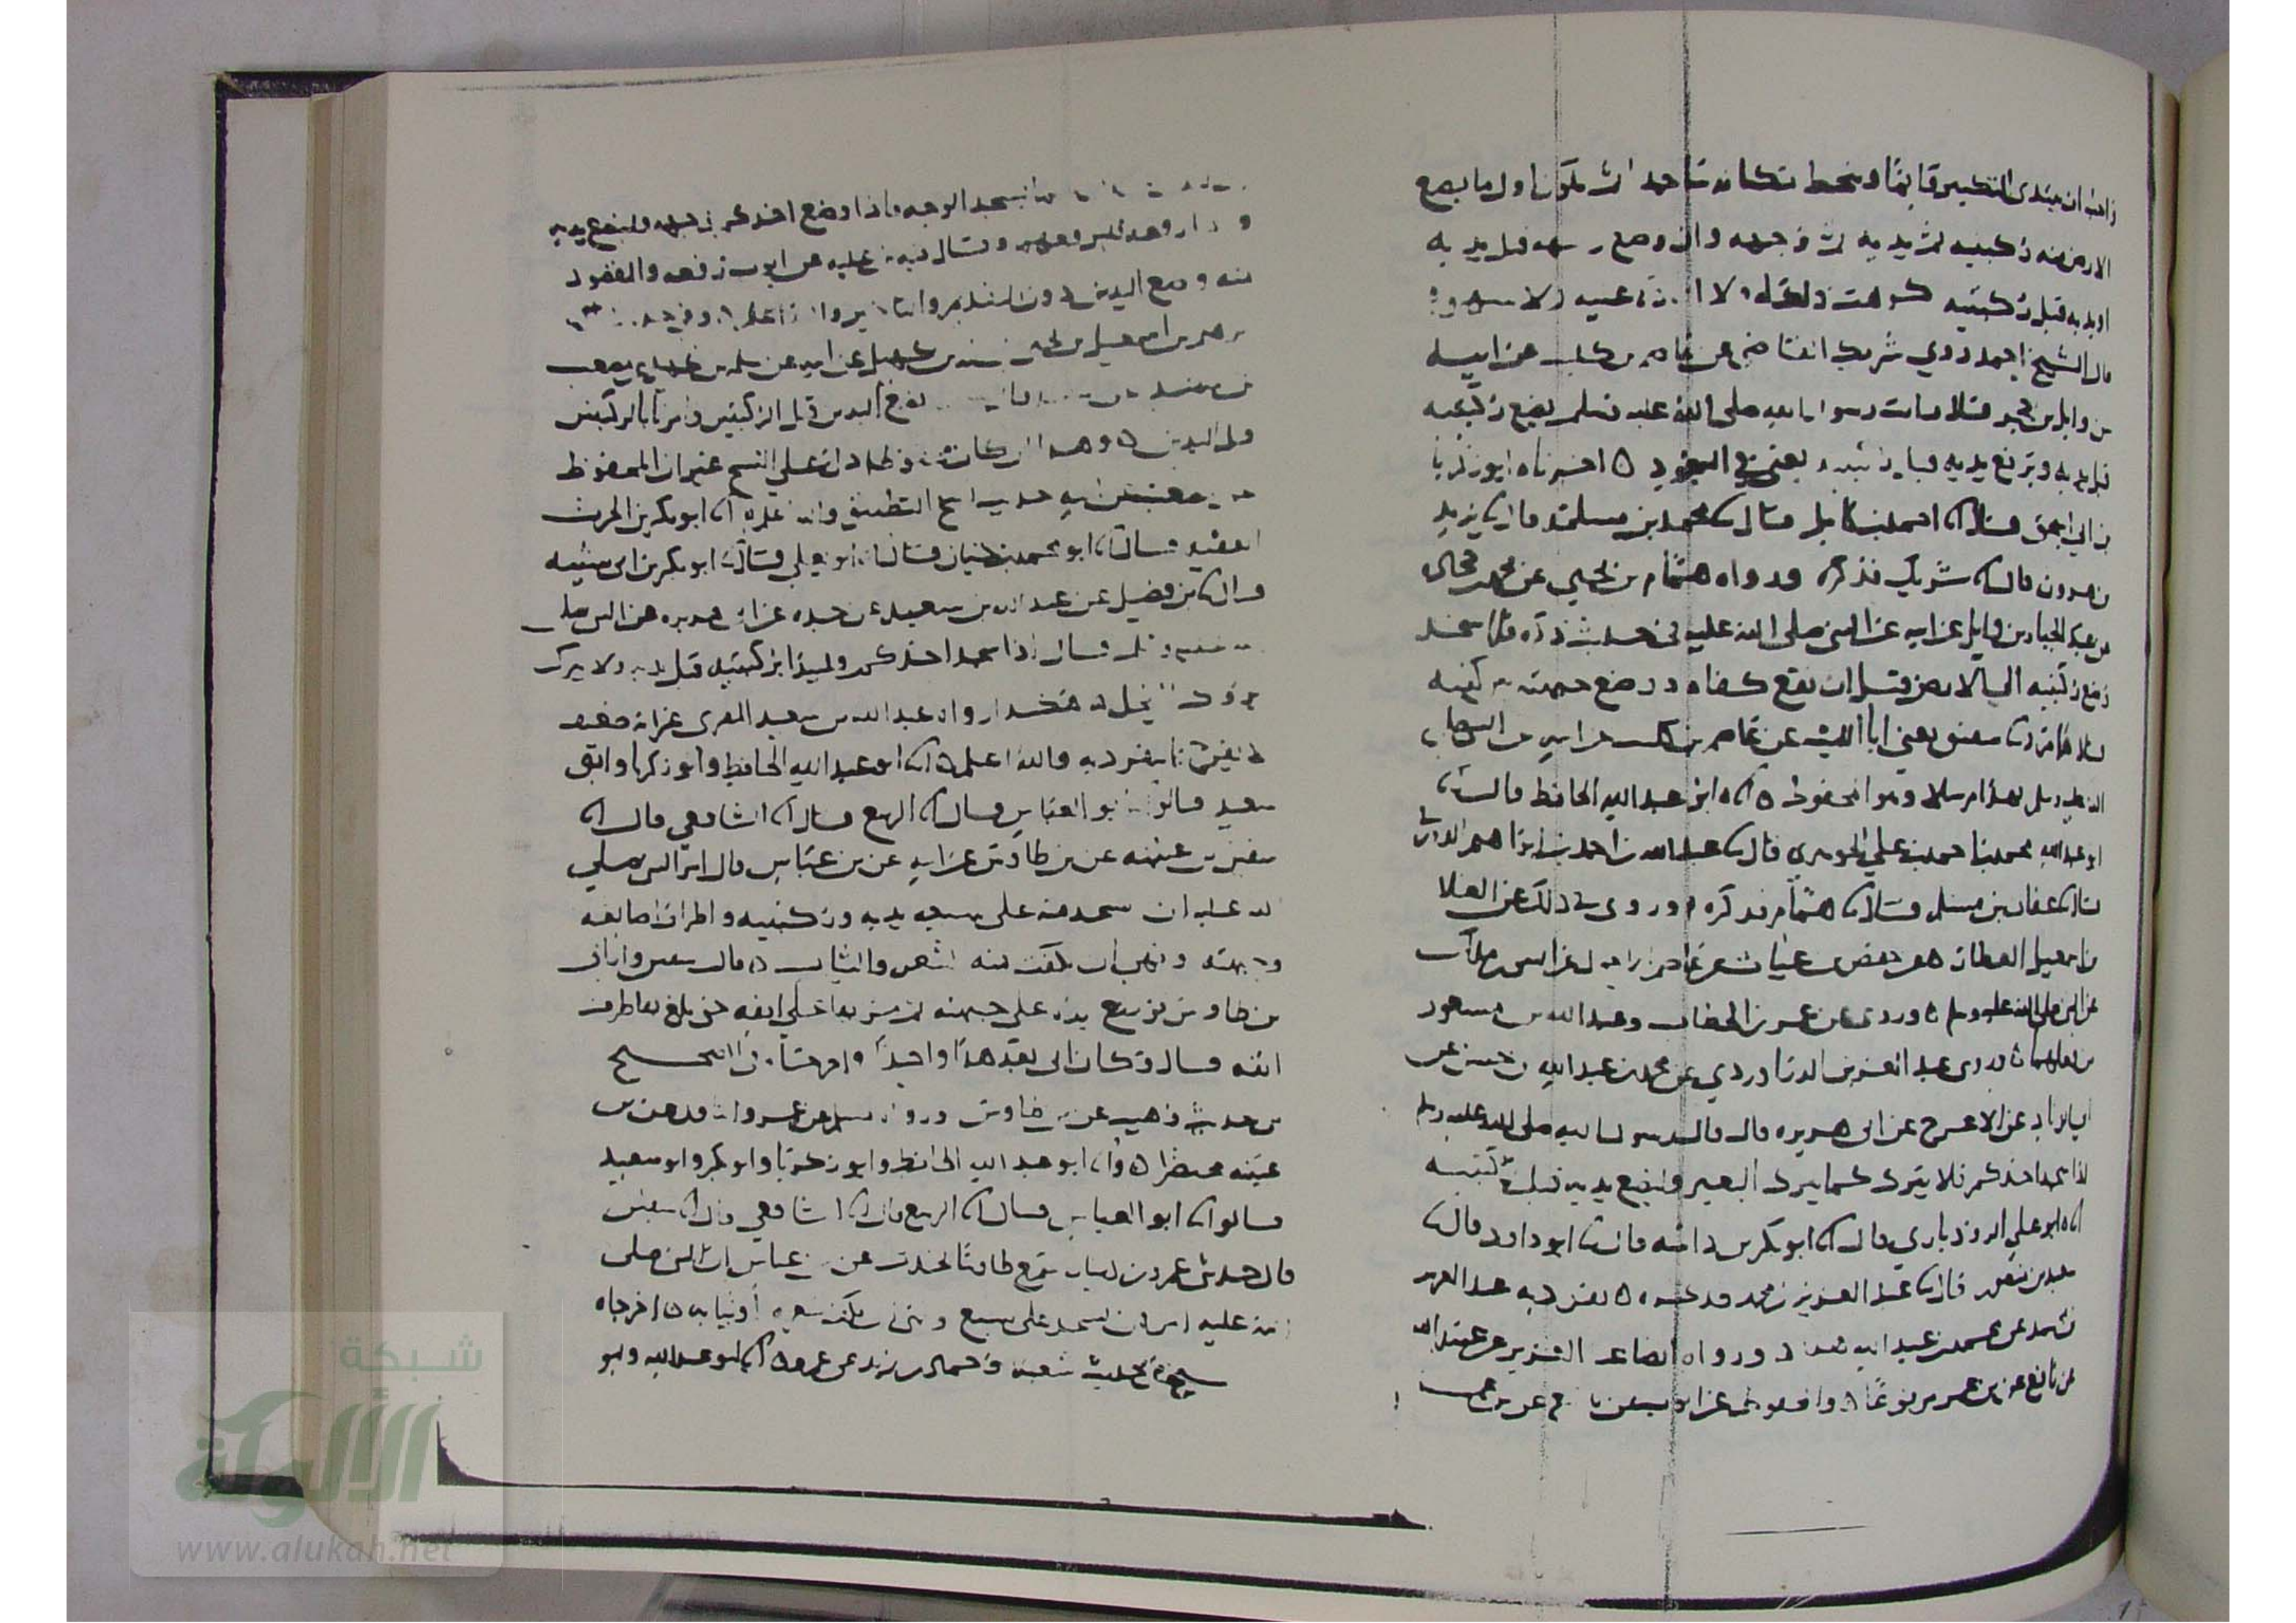 واحب ان يبتدي التكبير قايما وينحط مكانه ساجدا ثم يكون اول ما يضع
الارض منه ركبتيه ثم يديه ثم وجهه وان وضع وجهه قبل يديه
او يديه قبل ركبتيه كرهت ذلك له ولا اعادة عليه ولا سهو
قال الشيخ احمد روي شريك القاضي عن عاصم بن كليب عن ابيه
عن وايل بن حجر قال رايت رسول الله صلى الله عليه وسلم يضع ركبتيه
قبل يديه ويرفع يديه قبل ركبتيه يعني في السجود ه اخبرناه ابو زكريا
بن ابي اسحق قال انا احمد بن كامل قال نا محمد بن مسلمة قال نا يزيد
بن هرون قال نا شريك فذكره ورواه همام بن يحيى عن محمد بن جحادة
عن عبد الجبار بن وايل عن ابيه عن النبي صلى الله عليه في حديث ذكره فلما سجد
وقع ركبتيه الى الارض قبل ان يقع كفاه ووضع جبهته بين كفيه
قال همام ونا شقيق يعني ابا الليث عن عاصم بن كليب عن ابيه عن النبي صلى
الله عليه وسلم بهذا مرسلا وهو المحفوظ ه اناه ابو عبد الله الحافظ قال نا
ابو عبد الله محمد بن احمد بن علي الجوهري قال نا عبد الله بن احمد بن ابراهيم الدورقي
قال نا عفان بن مسلم قال نا همام فذكره ه وروى في ذلك عن العلا
بن اسمعيل العطار عن حفص بن غياث عن عاصم الاحول عن انس بن مالك
عن النبي صلى الله عليه وسلم ه وروى عن عمر بن الخطاب وعبد الله بن مسعود
من فعلهما ه وروى عبد العزيز الدراوردي عن محمد بن عبد الله بن حسن عن
ابي الزناد عن الاعرج عن ابي هريره قال قال رسول الله صلى الله عليه وسلم
اذا سجد احدكم فلا يبرك كما يبرك البعير وليضع يديه قبل ركبتيه
اناه ابو علي الروذباري قال انا ابو بكر بن داسه قال نا ابو داود قال نا
سعيد بن منصور قال نا عبد العزيز بن محمد فذكره ه تفرد به عبد العزيز
بن محمد عن محمد بن عبد الله هذا ورواه ايضا عبد العزيز عن عبيد الله
عن نافع عن بن عمر مرفوعا ه والمحفوظ عن ايوب عن نافع عن بن عمر
يسجد الوجه فاذا وضع احدكم وجهه فليضع يديه
واذا رفعه فليرفعهما وقال بن عليه عن ايوب رفعه والمقصود
منه وضع اليدين دون التقديم والتاخير والله اعلم
بن اسمعيل بن يحيى بن سلمه بن كهيل عن ابيه عن سلمه عن مصعب
بن سعد نضع اليدين قبل الركبتين وامرنا بالركبتين
قبل اليدين ه وهذا ان كان محفوظا دل على النسخ غير ان المحفوظ
عن مصعب عن ابيه حديث نسخ التطبيق والله اعلم انا ابو بكر بن الحرث
الفقيه قال انا ابو محمد بن حيان قال نا ابو يعلى قال نا ابو بكر بن ابي شيبه
قال نا بن فضيل عن عبد الله بن سعيد عن جده عن ابي هريره عن النبي صلى
الله عليه وسلم قال اذا سجد احدكم فليبدا بركبتيه قبل يديه ولا يبرك
بروك الفحل ه هكذا رواه عبد الله بن سعيد المقبري غير انه ضعيف
لا يفرح بما يتفرد به والله اعلم ه انا ابو عبد الله الحافظ وابو زكريا وابو
سعيد قالوا نا ابو العباس قال انا الربيع قال انا الشافعي قال انا
سفين بن عيينه عن بن طاوس عن ابيه عن بن عباس قال امر النبي صلى
الله عليه ان يسجد منه على سبعه يديه وركبتيه واطراف اصابعه
وجبهته ونهى ان يكفت منه الشعر والثياب ه قال سفين وارانا
بن طاوس فوضع يده على جبهته ثم مر بها على انفه حتى بلغ بها طرف
انفه قال وكان ابي يعد هذا واحدا ه اخرجاه في الصحيح
من حديث وهيب عن بن طاوس ورواه مسلم عن عمرو الناقد عن بن
عيينه مختصرا ه وانا ابو عبد الله الحافظ وابو زكريا وابو بكر وابو سعيد
قالوا نا ابو العباس قال انا الربيع قال انا الشافعي قال انا سفين
قال حدثني عمرو بن دينار سمع طاوسا يحدث عن بن عباس ان النبي صلى
الله عليه امر ان يسجد على سبع ونهى ان يكفت شعره او ثيابه ه اخرجاه
في الصحيح من حديث شعبه وحماد بن زيد عن عمرو ه انا ابو عبد الله وابو
شبكة
الألوكة
www.alukah.net